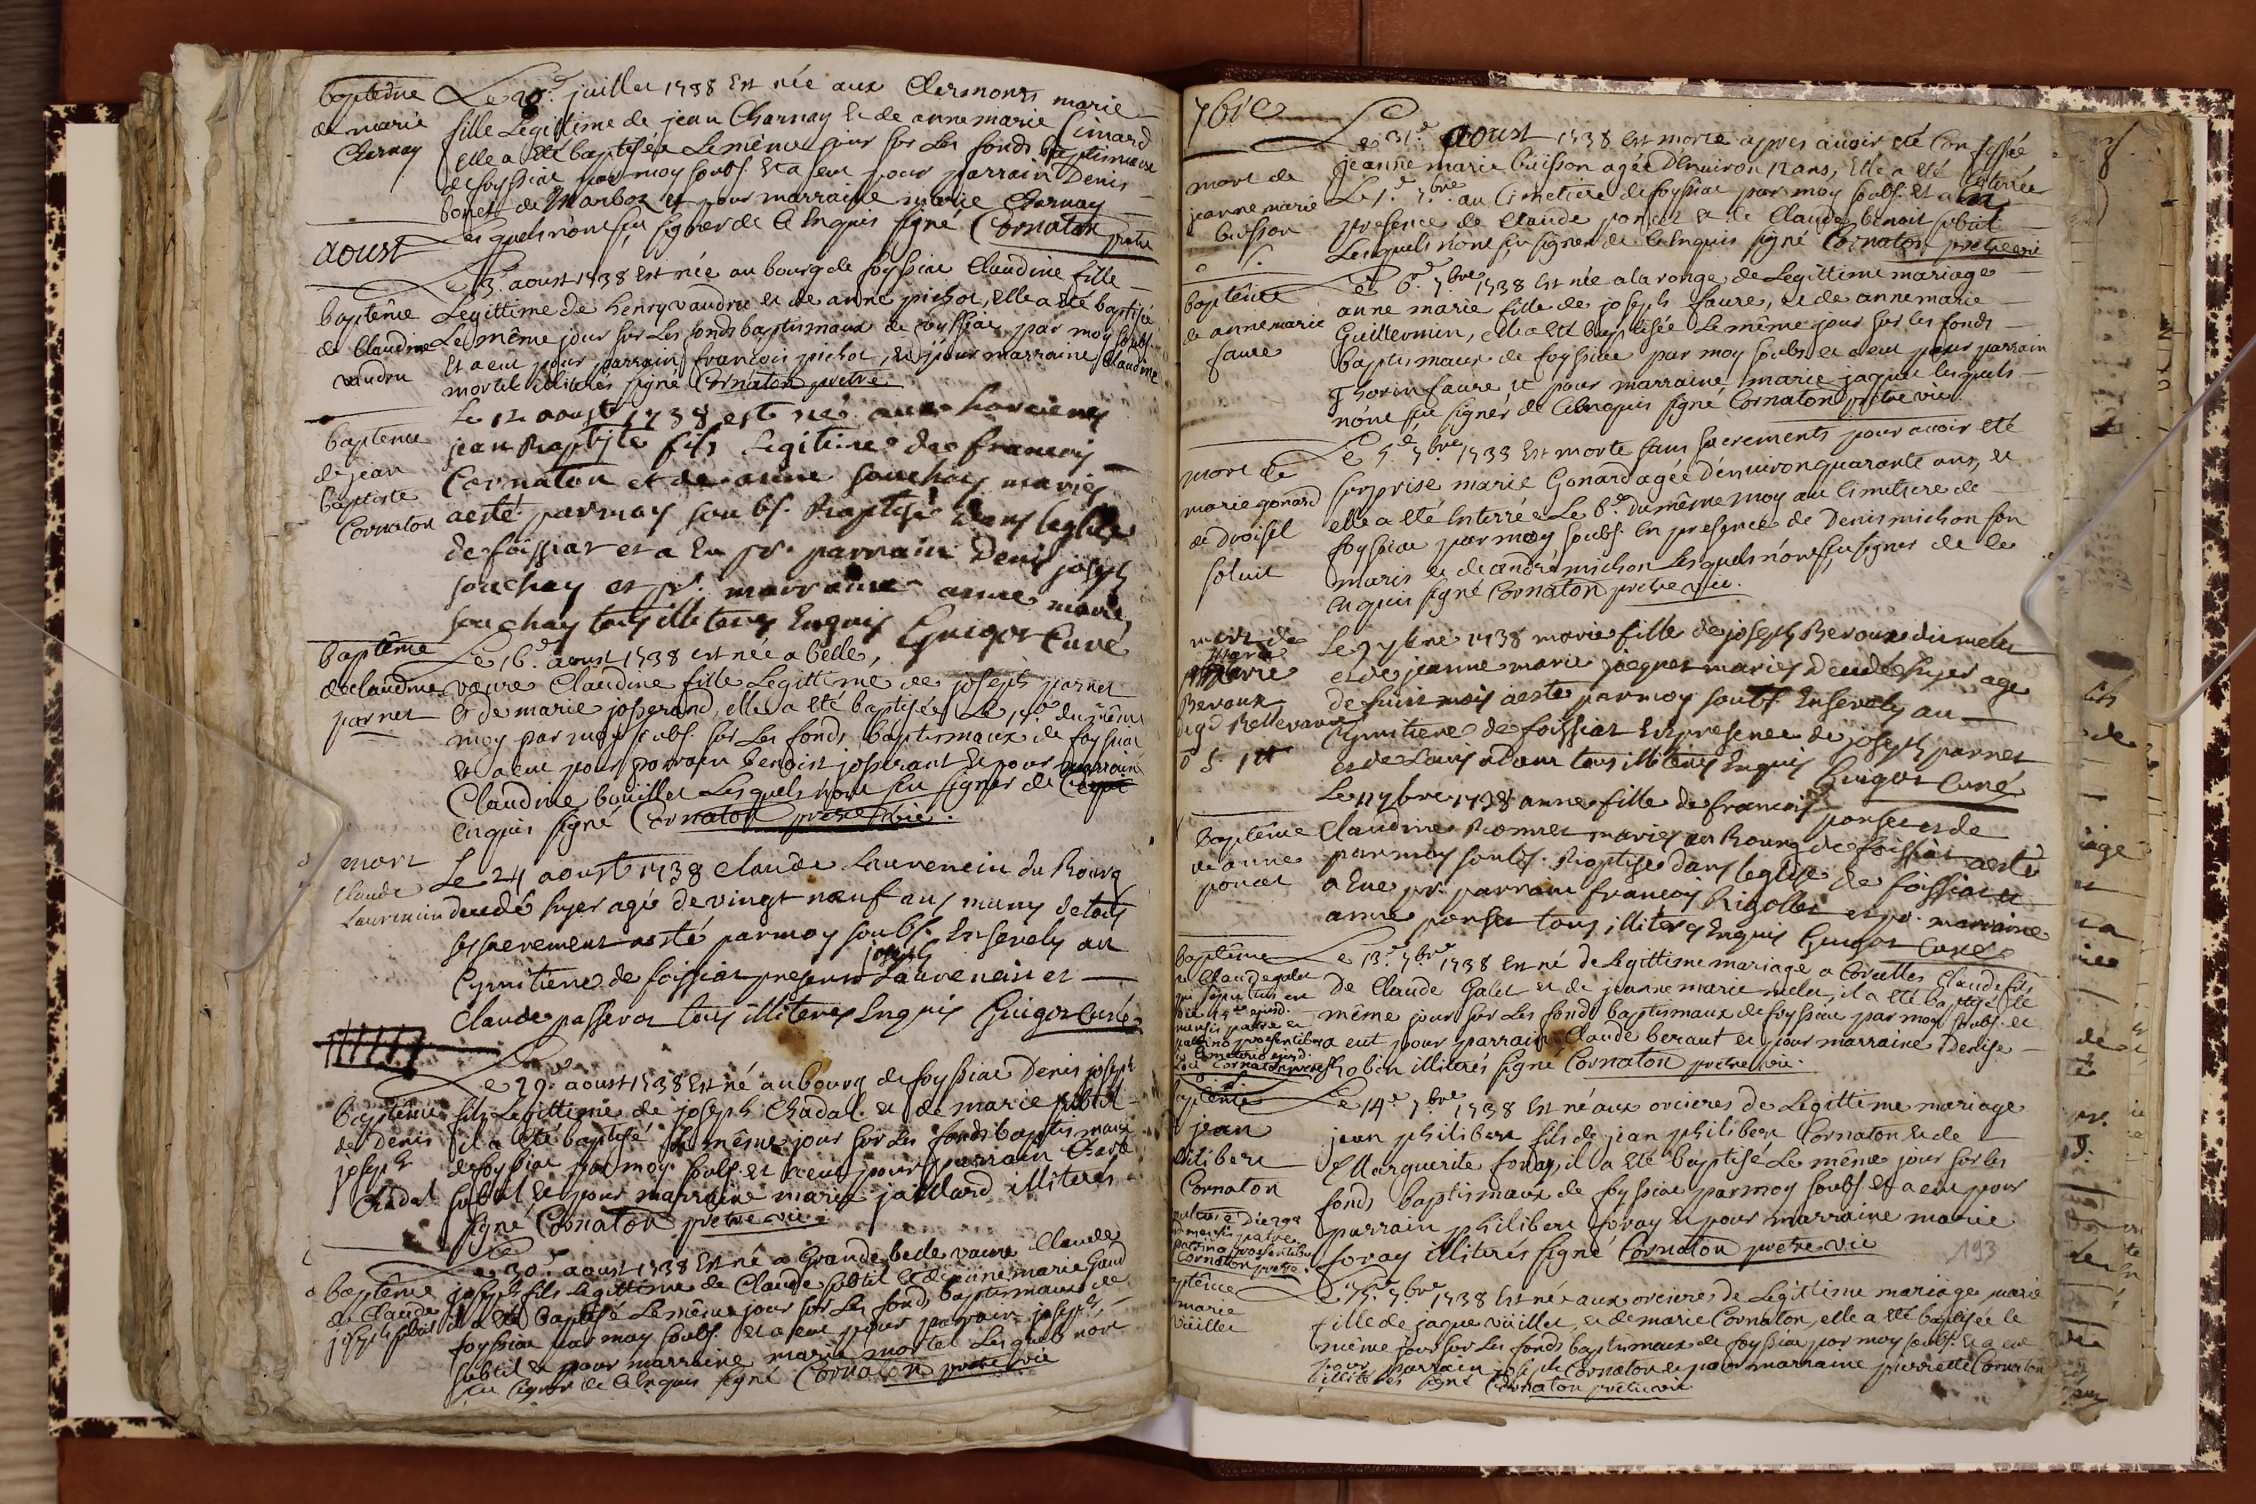 baptême
de marie
Charnay
Le 28e juillet 1738 Est née aux Clermonts marie
fille Legittime de jean Charnay Et de anne marie Simard
elle a été baptisée Le même jour sur Les fonds baptismaux
de foyssiat par moy soubs. Et a eut pour parrain Denis
bonet de Marboz et pour marraine marie Charnay
Lesquels n'ont sçu signer de ce Enquis signé Cornaton pretre
aoust
baptême
de Claudine
vaudru
Le 3e aoust 1738 Est née au bourg de foyssiat Claudine fille
Legittime de henry vaudru et de anne pichot, elle a été baptisée
Le même jour sur Les fonds baptismaux de foyssiat par moy soubs.
Et a eut pour parrain françois pichot, et pour marraine Claudine
mortel illiterés signé Cornaton pretre
baptême
de jean
baptiste
Cornaton
Le 12 aoust 1738 est né aux horcieres
jean Baptiste fils Legitime de francois
Cornaton et de anne souchay mariés
a esté par moy soubs. Baptisé dans l'eglise
de foissiat et a Eu pr. parrain Denis joseph
souchay et pr. marraine anne marie
souchay tous illiterés Enquis Guigot Curé
baptême
de Claudine
parnet
Le 16e aoust 1738 est née a belle
vavre Claudine fille Legittime de joseph parnet
Et de marie josserand, elle a été baptisée Le 17e du même
moy par moy soubs. sur Les fonds baptismaux de foyssiat
et a eut pour parrain benoist josserant Et pour marraine
Claudine bouillet Lesquels n'ont sçu signer de ce
enquis signé Cornaton pretre vic.
mort
Claude
Laurencin
Le 24 aoust 1738 Claude Laurencin du Bourg
decedé hyer agé de vingt neuf ans muny de tous
ses sacrements a esté par moy soubs. Ensevely au
joseph
Cymitiere de foissiat presents Laurencin et
Claude passerat tous illiterés Enquis Guigot Curé
baptême
de denis
joseph
Chadal
Le 29e aoust 1738 Est né au bourg de foyssiat Denis joseph
fils Legittime de joseph Chadal et de marie subtil
il a été baptisé Le même jour sur Les fonds baptismaux
de foyssiat par moy soubs. et a eut pour parrain
subtil, et pour marraine marie jaillard illiterés
signé Cornaton pretre vic.
baptême
de Claude
joseph subtil
Le 30e aoust 1738 Est né a Grande belle vavre Claude
joseph fils Legittime de Claude subtil et de anne marie
il a été baptisé Le même jour sur Les fonds baptismaux de
foyssiat par moy soubs. et a eut pour parrain joseph
subtil et pour marraine marie mortel Lesquels n'ont
sçu signer de ce Enquis signé Cornaton pretre vic
7bre
mort de
jeanne marie
buisson
Le 31e aoust 1738 est morte apres avoir été Confessée
jeanne marie buisson agée D'Environ 12 ans, Elle a été Enterrée
Le 1e 7bre au Cimetiere de foyssiat par moy soubs. Et a
presence de Claude ponset et de Claude benoit subtil
Lesquels n'ont sçu signer de ce Enquis signé Cornaton pretre vic
baptême
de anne marie
faure
Le 6e 7bre 1738 Est née a la ronge de Legittime mariage
anne marie fille de joseph faure, et de anne marie
Guillermin, elle a été baptisée Le même jour sur les fonds
baptismaux de foyssiat par moy soubs. et a eut pour parrain
Thorin faure et pour marraine marie jaquet lesquels
n'ont sçu signer de ce Enquis signé Cornaton pretre vic
mort de
marie gonard
de droisel
soluit
Le 5e 7bre 1738 Est morte sans sacrements pour avoir été
surprise marie Gonard agée d'environ quarante ans, et
elle a été Enterrée Le 6e du même moy au Cimetiere de
foyssiat par moy soubs. En presence de Denis michon son
maris et de andré michon Lesquels n'ont sçu signer de ce
enquis signé Cornaton pretre vic.
mort de
marie
Beroux
Le 9 7bre 1738 marie fille de joseph Beroux
et de jeanne marie jacquet mariés decedée hyer agé
de huit mois a esté par moy soubs. Ensevely au
Cymitiere de foissiat En presence de joseph parnet
et de Louis Adam tous illiterés Enquis Guigot Curé
baptême
de anne
poncet
Le 11 7bre 1738 anne fille de francois ponset et de
Claudine Bonnet mariés au Bourg de foissiat a esté
par moy soubs. Baptisée dans l'eglise de foissiat et
a Eue pr. parrain francois Rigollet et pr. marraine
anne ponset tous illiterés Enquis Guigot Curé
baptême
de Claude galet
Le 13e 7bre 1738 Est né de Legittime mariage a Corcelles Claude fils
De Claude Galet et de jeanne marie melet, il a été baptisé le
même jour sur Les fonds baptismaux de foyssiat par moy soubs. et
a eut pour parrain Claude beraut et pour marraine Denise
Robin illiterés signé Cornaton pretre vic.
baptême
de jean
philibert
Cornaton
Le 14e 7bre 1738 Est né aux orcieres de Legittime mariage
jean philibert fils de jean philibert Cornaton et de
Marguerite foray, il a été baptisé Le même jour sur les
fonds baptismaux de foyssiat par moy soubs. Et a eut pour
parrain philibert foray et pour marraine marie
foray illiterés signé Cornaton pretre vic
193
baptême
marie
vüillet
Le 15e 7bre 1738 Est née aux orcieres de Legittime mariage marie
fille de jaque vüillet, et de marie Cornaton, elle a été baptisée le
même jour sur Les fonds baptismaux de foyssiat par moy soubs. Et a eut
pour parrain Cornaton et pour marraine pierrette Cornaton
illiterés signé Cornaton pretre vic